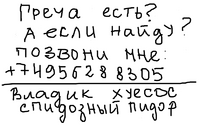 Греча есть?
А если найду?
позвони мне:
+74956288305
Владик хуесос
спидозный пидор